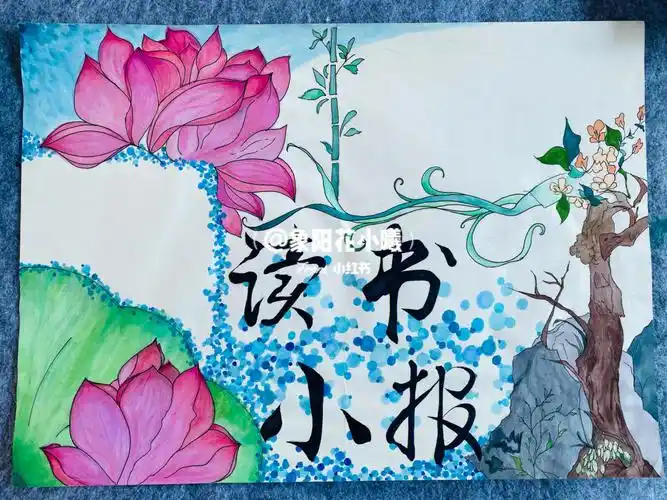 @象阳花小曦
小红书
读书
小报